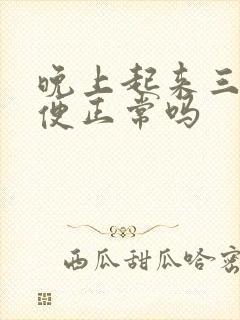 晚上起来三
便正常吗
西瓜甜瓜哈密